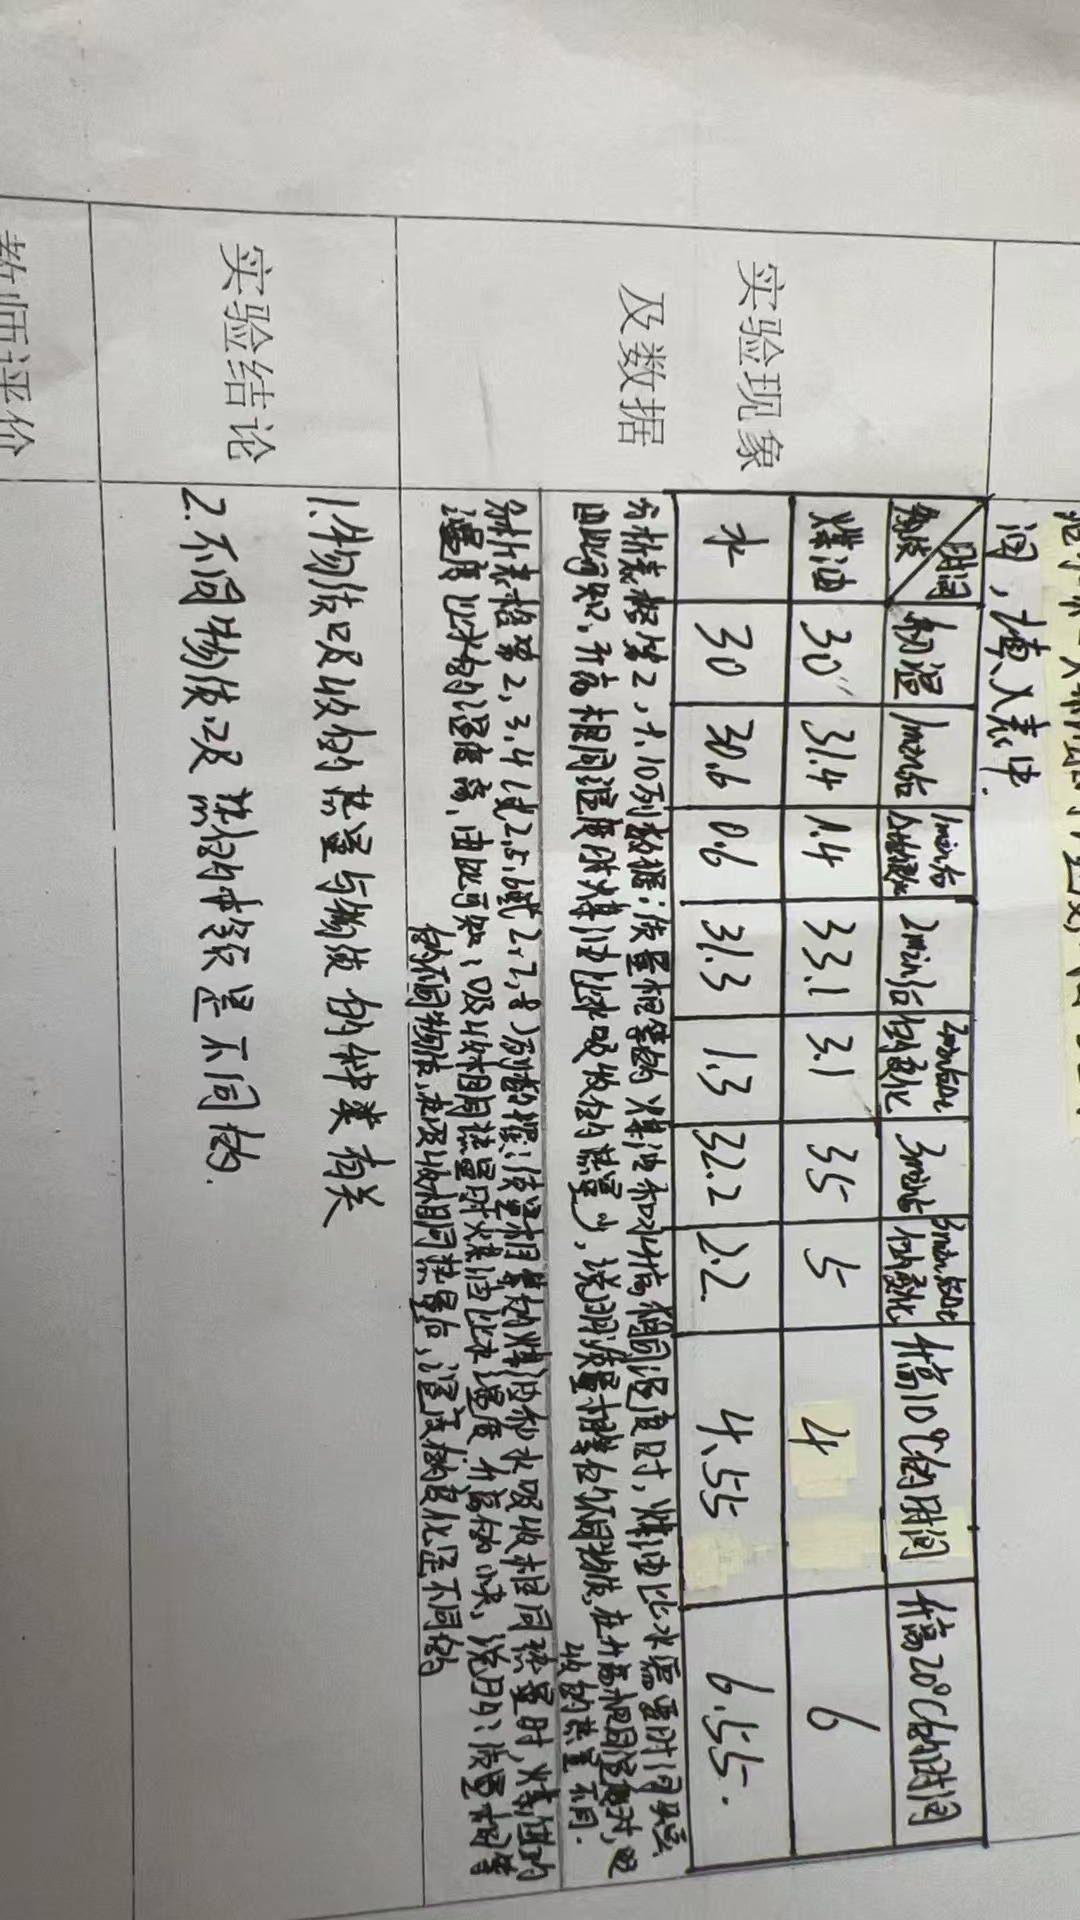 间，填入表中.
实验现象
及数据
时间
初温 1min后 2min后 3min后 升高10℃的时间 升高20℃的时间
煤油 30 31.4 1.4 33.1 3.1 35 5 4 6
水 30 30.6 0.6 31.3 1.3 32.2 2.2. 4.55 6.55.
分析表格第2,9,10列数据:质量相等的煤油和水升高相同温度时,煤油比水需要时间短,
由此可知,升高相同温度时煤油比水吸收的热量少,说明质量相等的不同物质,在升高相同温度时,吸
收的热量不同.
分析表格第2,3,4(或2,5,6或2,7,8)列数据:质量相等的煤油和水吸收相同热量时,煤油的
温度比水的温度高,由此可知:吸收相同热量时煤油比水温度升高的快,说明:质量相等
的不同物质,在吸收相同热量后,温度的变化是不同的
实验结论
1.物质吸收的热量与物质的种类有关
2.不同物质吸热的本领是不同的.
教师评价